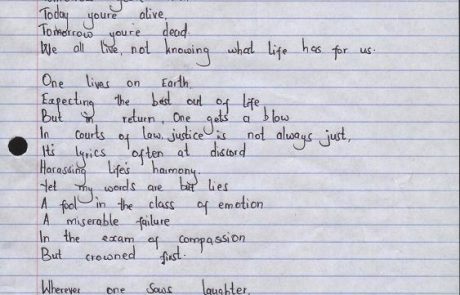 Today you're alive,
Tomorrow you're dead.
We all live, not knowing what life has for us.
One lives on Earth,
Expecting the best out of life
But in return, One gets a blow
In courts of law, justice is not always just,
It's lyrics often at discord
Harassing life's harmony.
Yet my words are but lies
A fool in the class of emotion
A miserable failure
In the exam of compassion
But crowned first.
Wherever one sows laughter,